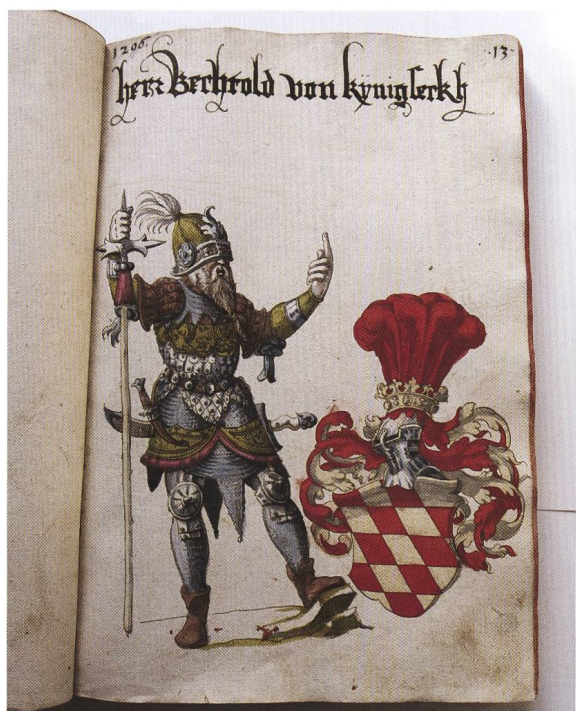 1206.
·13·
herr Bechtold von kÿnigseckh